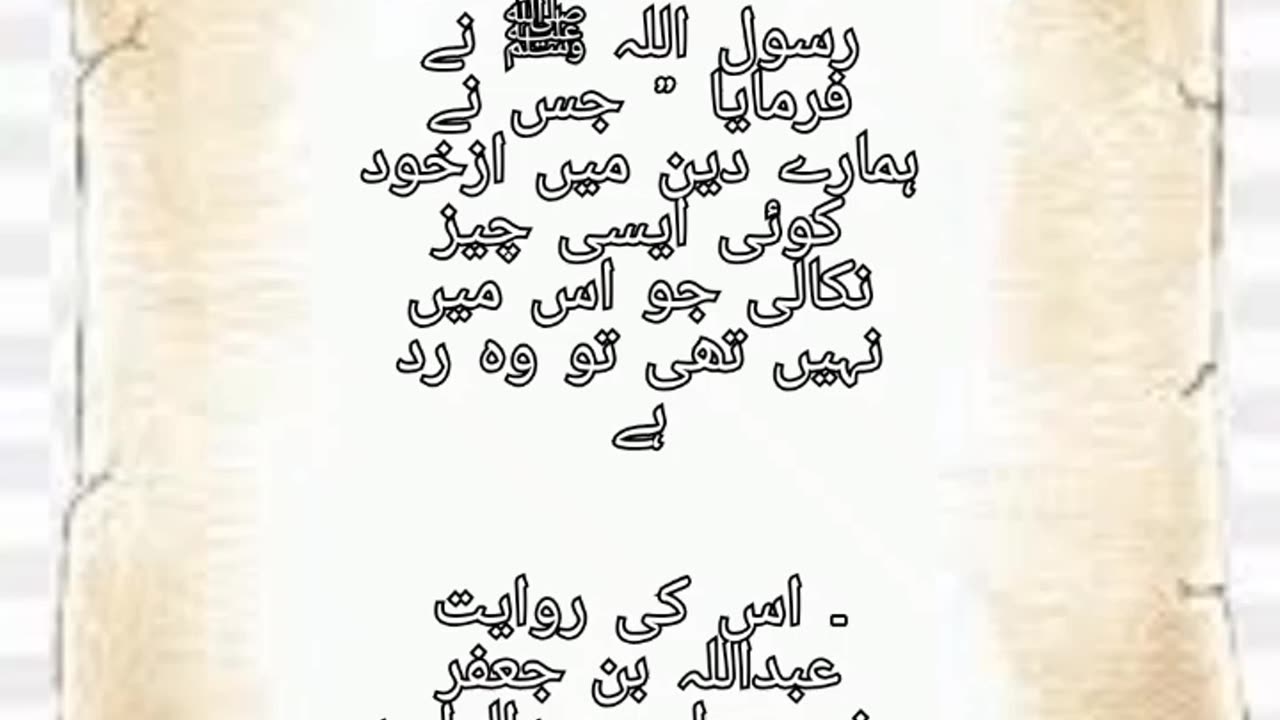 رسول اللہ ﷺ نے
فرمایا ” جس نے
ہمارے دین میں ازخود
کوئی ایسی چیز
نکالی جو اس میں
نہیں تھی تو وہ رد
ہے
۔ اس کی روایت
عبداللہ بن جعفر